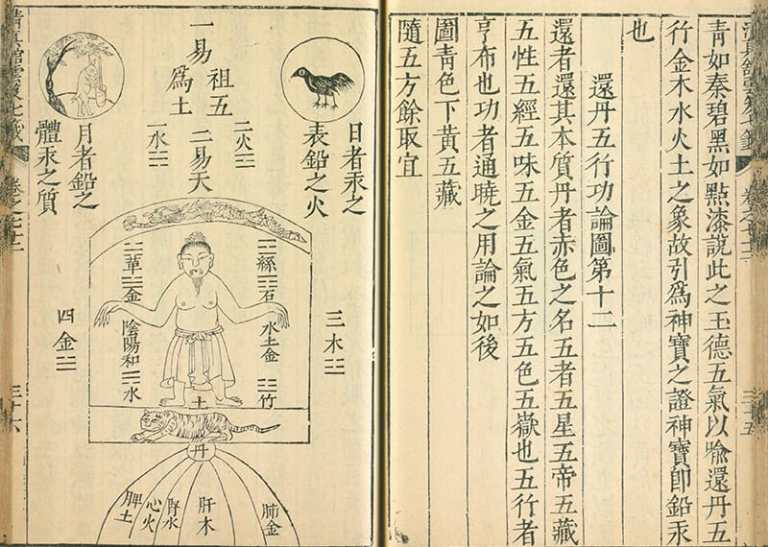 清真館雲笈七籤
卷之七十二
三十五
青如秦碧黑如點漆說此之玉德五氣以喻還丹五
行金木水火土之象故引爲神寶之證神寶即鉛汞
也
還丹五行功論圖第十二
還者還其本質丹者赤色之名五者五星五帝五藏
五性五經五味五金五氣五方五色五嶽也五行者
亨布也功者通曉之用論之如後
圖青色下黃五藏
隨五方餘取宜
日者汞之
表鉛之火
二火☲
一易
祖五
爲土
二易天
一水☵
月者鉛之
體汞之質
三木
四金
絲
石
水土金
竹
革
金
陰陽和
水
土
丹
肺金
肝木
腎水
心火
脾土
清真館雲笈七籤
卷之七十二
三十六